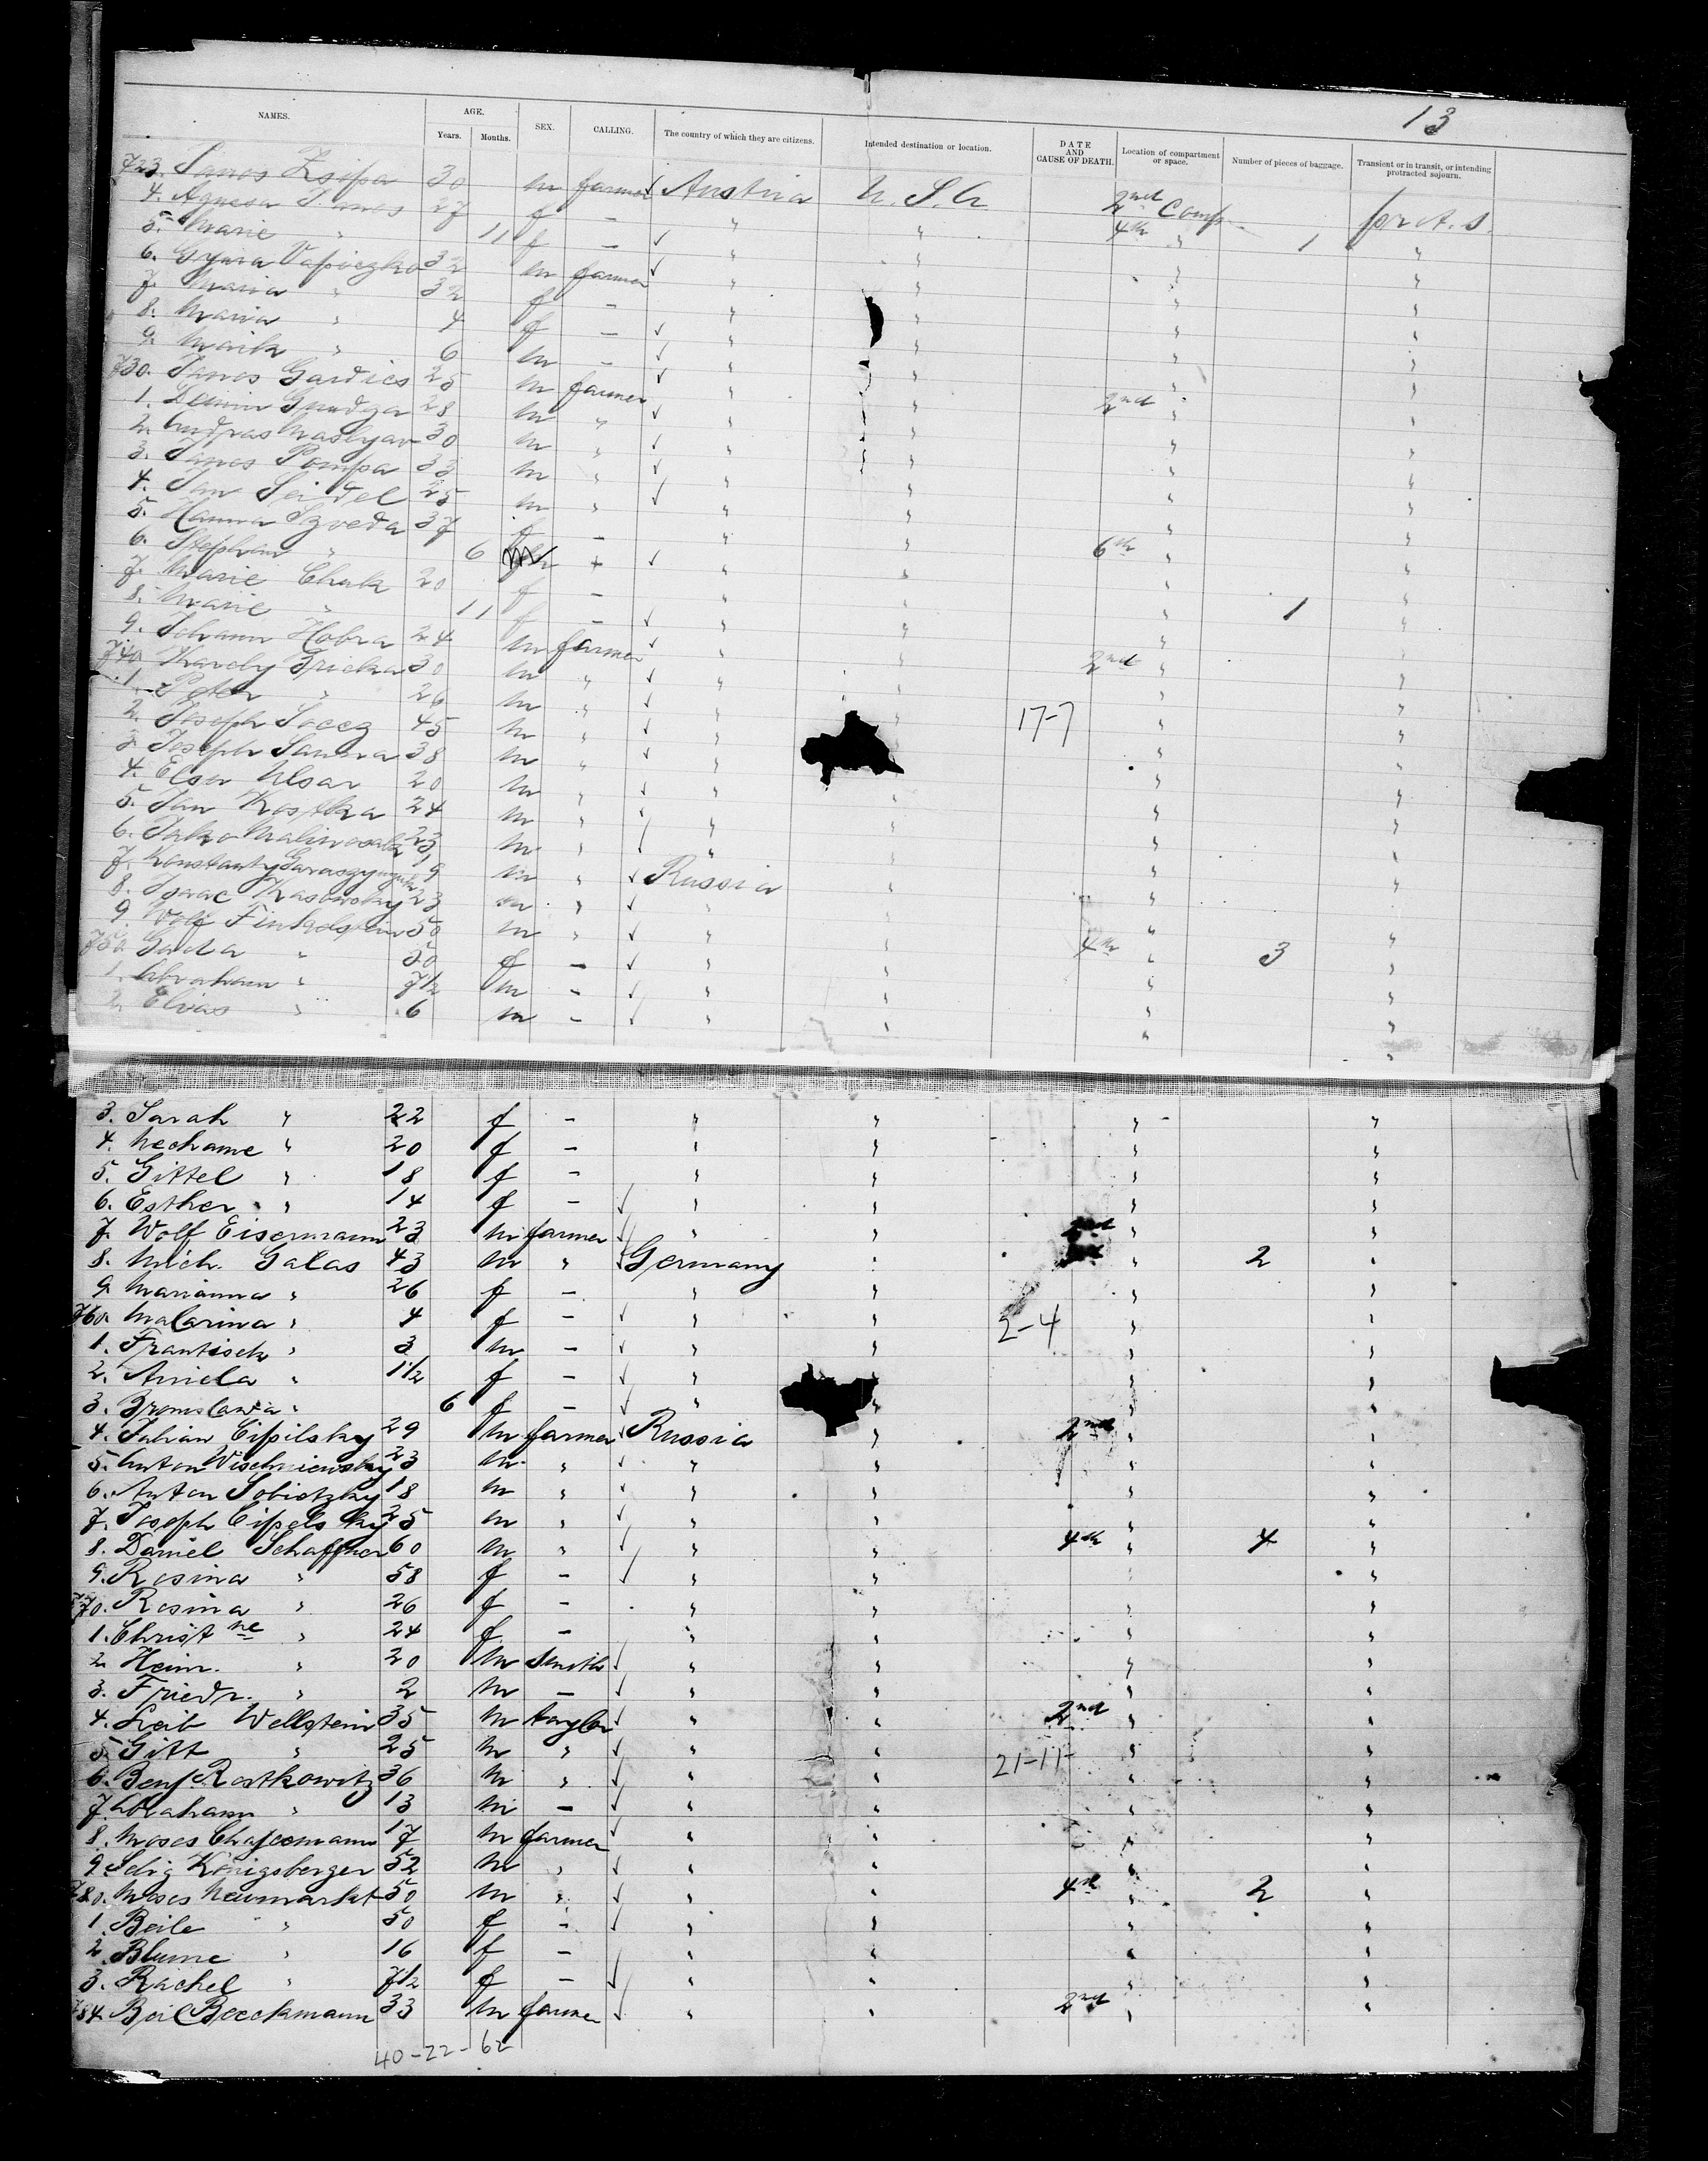 13
NAMES. AGE. Years. Months. SEX. CALLING. The country of which they are citizens. Intended destination or location. DATE AND CAUSE OF DEATH. Location of compartment or space. Number of pieces of baggage. Transient or in transit, or intending protracted sojourn.
723. Janos 30 m farmer ✓ Austria U. S. A. 2nd Comp.
4. Agnesa Janos 27 f – " " 4th " 1
5. Marie " 11 f – ✓ " " " "
6. 32 m farmer ✓ " " " "
7. Maria " 32 f – " " " "
8. Maria " 4 f – ✓ " " " "
9. " 6 m – ✓ " " " "
730. Janos Gardics 25 m farmer ✓ " " 2nd " "
1. 28 m " ✓ " " " "
2. Andras 30 m " ✓ " " " "
3. Janos Pompa 33 m " ✓ " " " "
4. Jan Seidel 25 m " ✓ " " " "
5. Hanna Szveda 37 f – " " 6th " "
6. Stephan " 6 – ✓ " " " "
7. Marie Chuk 20 f – " " " 1 "
8. Marie " 11 f – ✓ " " " "
9. Johann Hobra 24 m farmer ✓ " " 2nd " "
740. 30 m " ✓ " " " "
1. Peter " 26 m " ✓ " " " "
2. Joseph 45 m " ✓ " " 17-7 " "
3. Joseph 38 m " ✓ " " " "
4. 20 m " ✓ " " " "
5. Jan Kostka 24 m " ✓ " " " "
6. 23 m " ✓ " " " "
7. 19 m " ✓ Russia " " "
8. Isaac 23 m " ✓ " " " "
9. Wolf Finkelstein 50 m " ✓ " " 4th " 3 "
750. " 50 f – ✓ " " " "
1. Abraham " 7½ m – ✓ " " " "
2. Elias " 6 m – ✓ " " " "
3. Sarah " 22 f – " " " "
4. Nechame " 20 f – " " " "
5. Gittel " 18 f – " " " "
6. Esther " 14 f – ✓ " " " "
7. Wolf Eisermann 23 m farmer ✓ " " "
8. Mich. Galas 43 m " ✓ Germany " " 2 "
9. Marianna " 26 f – " " " "
760. " 4 f – ✓ " " 2-4 " "
1. Frantisek " 3 m – ✓ " " " "
2. Aniela " 1½ f – ✓ " " " "
3. " 6 f – ✓ " " " "
4. 29 m farmer ✓ Russia " 2nd " "
5. Anton Wischniewsky 23 m " ✓ " " " "
6. Anton Sobietzky 18 m " ✓ " " " "
7. Joseph 25 m " ✓ " " " "
8. Daniel Schaffner 60 m " ✓ " " 4th " 4 "
9. Rosina " 58 f – ✓ " " " "
770. Rosina " 26 f – " " " "
1. Christne " 24 f – " " " "
2. Heinr. " 20 m smith ✓ " " " "
3. Friedr. " 2 m – ✓ " " " "
4. Leib Wellstein 35 m taylor ✓ " " 2nd " "
5. Gitt " 25 m " ✓ " " 21-11- " "
6. Benj. Rostkowitz 36 m " ✓ " " " "
7. Abraham " 13 m – ✓ " " " "
8. Moses 17 m farmer ✓ " " " "
9. Selig Königsberger 52 m " ✓ " " " "
780. Moses Neumarkt 50 m " ✓ " " 4th " 2 "
1. Beile " 50 f – ✓ " " " "
2. Blume " 16 f – " " " "
3. Rachel " 7½ f – ✓ " " " "
784. Beckmann 33 m farmer ✓ " " 2nd " "
40-22-62